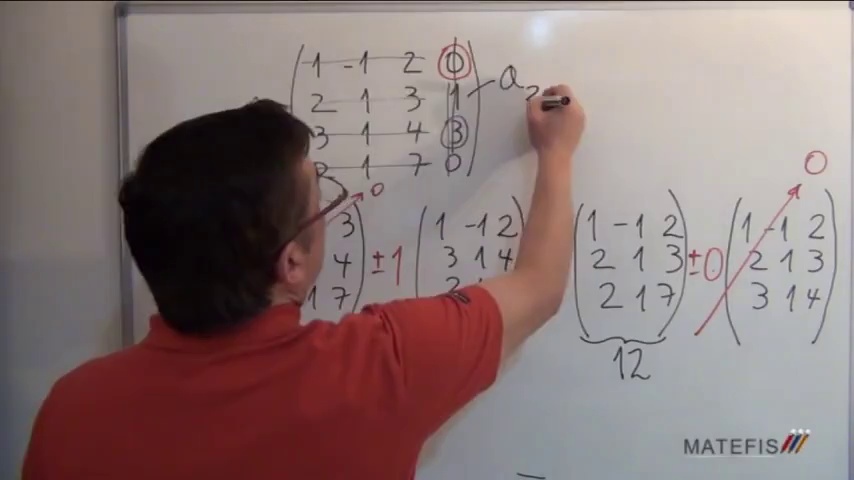 1 -1 2 0
2 1 3 1 a2
3 1 4 3
1 7 0
0
0
3
4
1 7
±1
1 -1 2
3 1 4
1 -1 2
2 1 3
2 1 7
12
±0
1 -1 2
2 1 3
3 1 4
MATEFIS